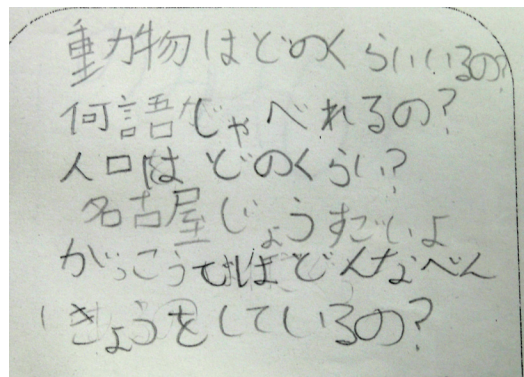 動物はどのくらいいるの?
何語がしゃべれるの?
人口はどのくらい?
名古屋じょうすごいよ
がっこうではどんなべん
きょうをしているの?